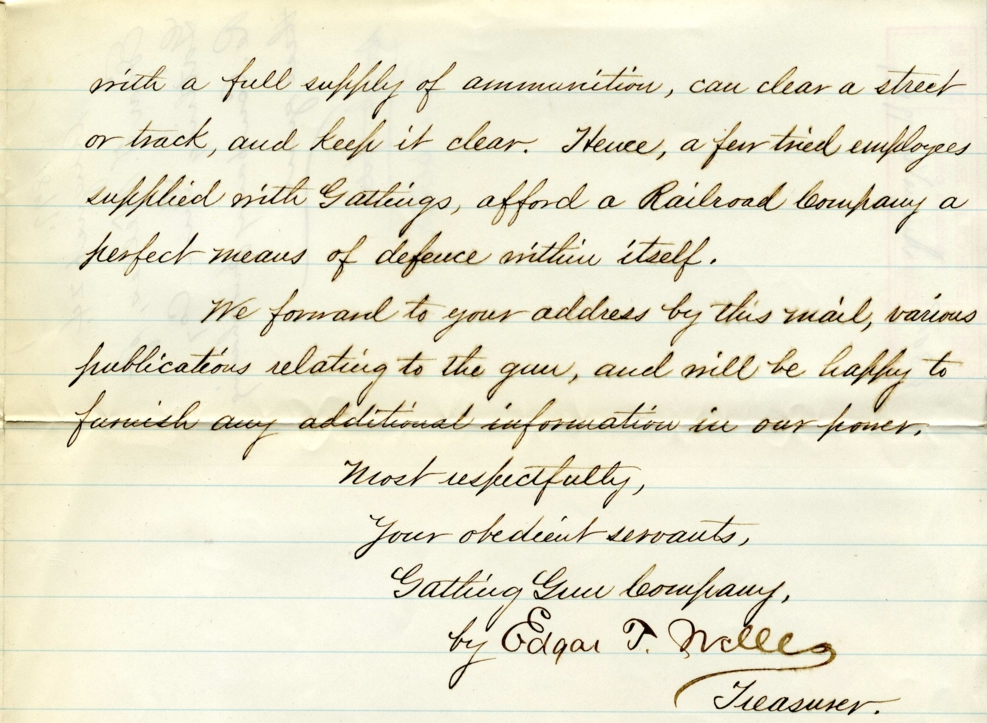 with a full supply of ammunition, can clear a street
or track, and keep it clear. Hence, a few tried employees
supplied with Gatlings, afford a Railroad Company a
perfect means of defence within itself.
We forward to your address by this mail, various
publications relating to the gun, and will be happy to
furnish any additional information in our power.
Most respectfully,
Your obedient servants,
Gatling Gun Company,
by Edgar T. Welles
Treasurer.